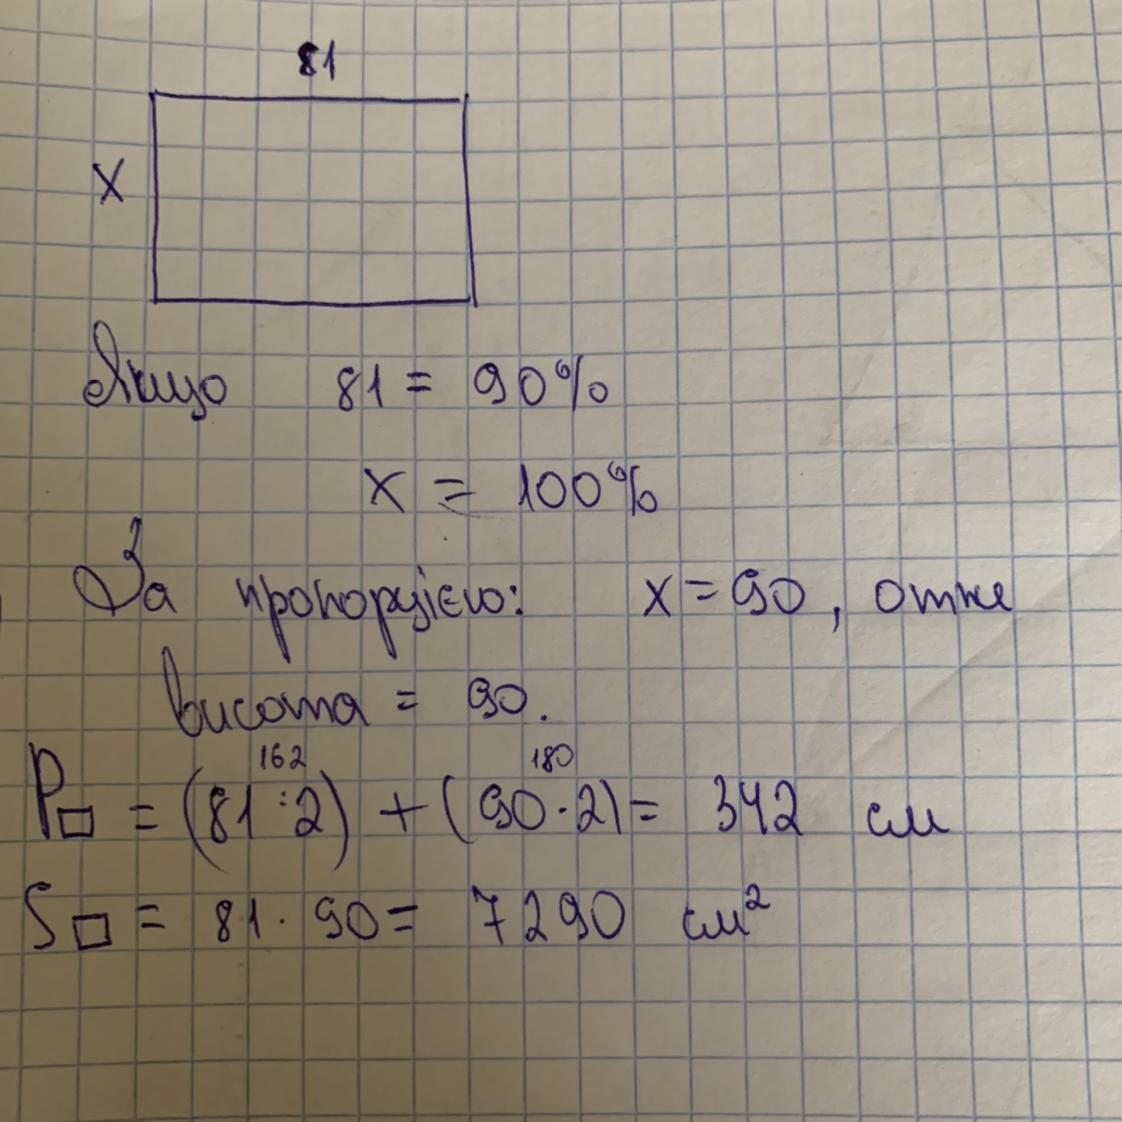 81
X
Якщо 81 = 90%
x = 100%
За пропорцією: x = 90, отже
висота = 90.
162 180
P□ = (81 : 2) + (90 · 2) = 342 см
S□ = 81 · 90 = 7290 см²